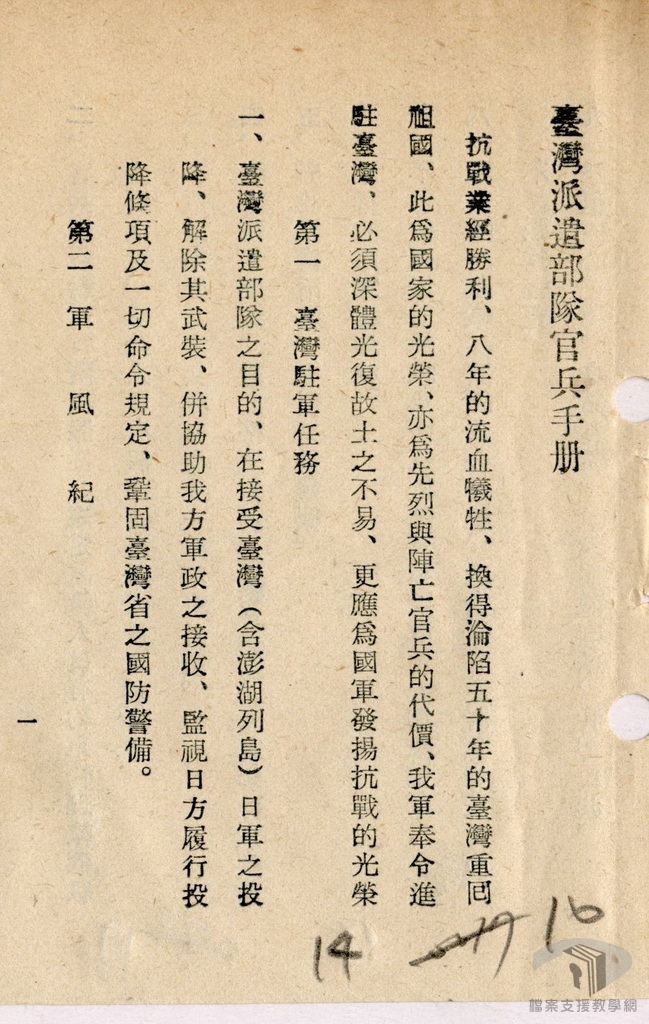 臺灣派遣部隊官兵手册
抗戰業經勝利、八年的流血犧牲、換得淪陷五十年的臺灣重回
祖國、此爲國家的光榮、亦爲先烈與陣亡官兵的代價、我軍奉令進
駐臺灣、必須深體光復故土之不易、更應爲國軍發揚抗戰的光榮
第一 臺灣駐軍任務
一、臺灣派遣部隊之目的、在接受臺灣（含澎湖列島）日軍之投
降、解除其武裝、併協助我方軍政之接收、監視日方履行投
降條項及一切命令規定、鞏固臺灣省之國防警備。
第二 軍風紀
一
14
16
檔案支援教學網